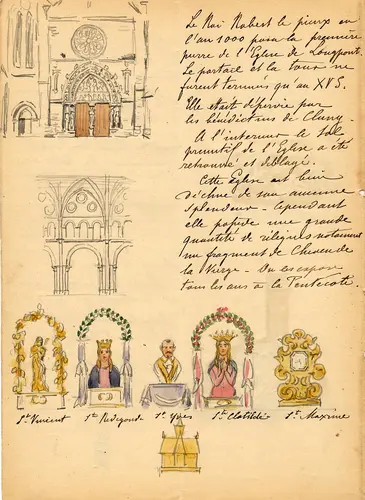 Le Roi Robert le pieux en
l'an 1000 posa la première
pierre de l'Eglise de Longpont.
Le portail et la tour ne
furent terminés qu'au XVS.
Elle était desservie par
les bénédictins de Cluny.
A l'interieur le sol
primitif de l'Eglise a été
retrouvé et déblayé.
Cette Eglise est bien
déchue de son ancienne
splendeur. Cependant
elle possède une grande
quantité de reliques notamment
un fragment de
la Vierge. On les expose
tous les ans à la Pentecôte.
St Vincent
Ste Radegonde
St Yves
Ste Clotilde
St Maxime